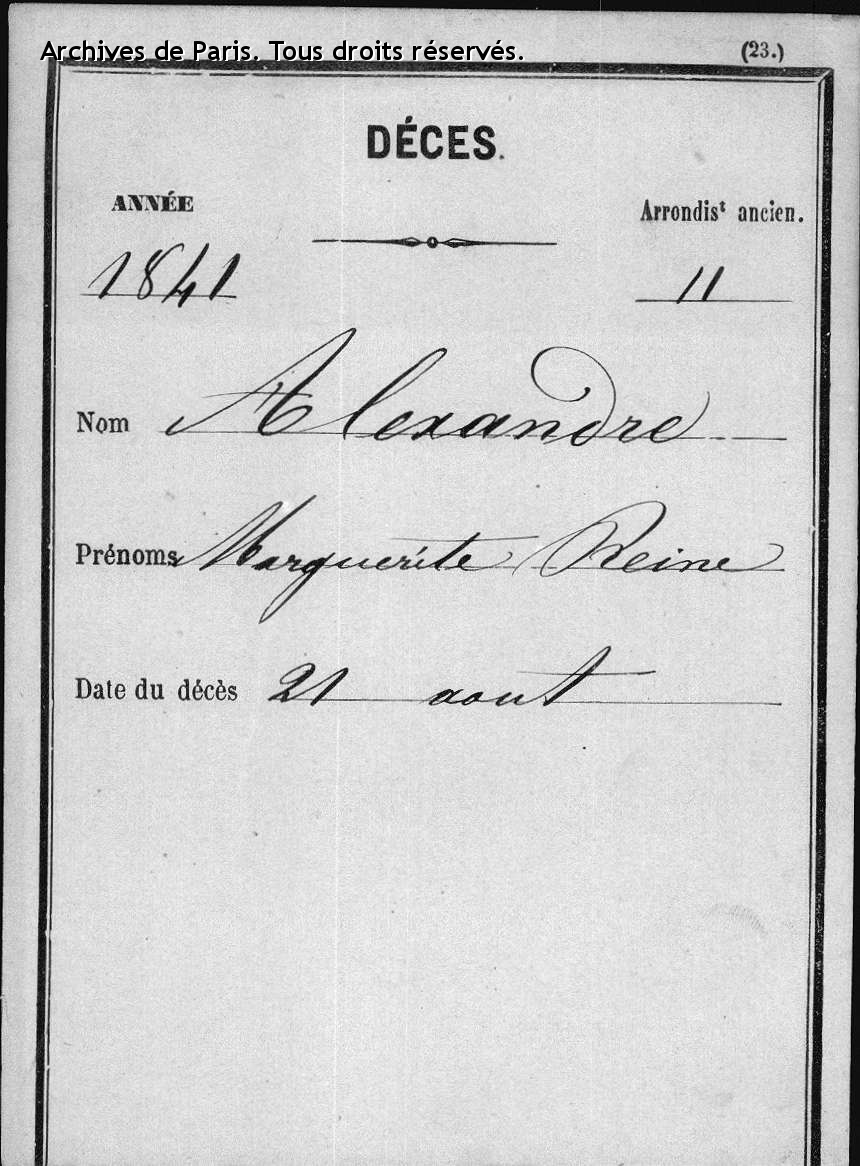 Archives de Paris. Tous droits réservés. (23.)
DÉCES.
ANNÉE Arrondis^t ancien.
1841 11
Nom Alexandre
Prénoms Marguerite Reine
Date du décès 21 aout